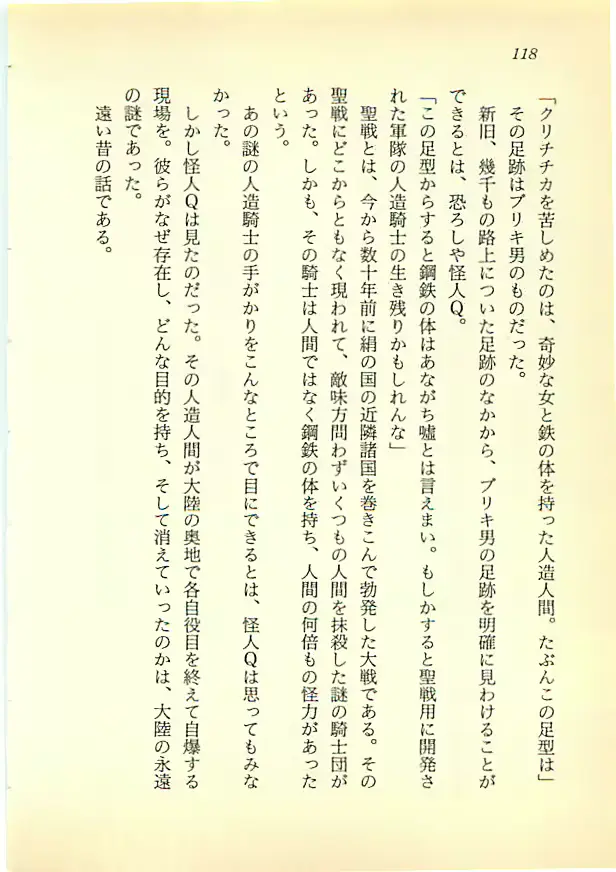 118
「クリチチカを苦しめたのは、奇妙な女と鉄の体を持った人造人間。たぶんこの足型は」
その足跡はブリキ男のものだった。
新旧、幾千もの路上についた足跡のなかから、ブリキ男の足跡を明確に見わけることが
できるとは、恐ろしや怪人Q。
「この足型からすると鋼鉄の体はあながち嘘とは言えまい。もしかすると聖戦用に開発さ
れた軍隊の人造騎士の生き残りかもしれんな」
聖戦とは、今から数十年前に絹の国の近隣諸国を巻きこんで勃発した大戦である。その
聖戦にどこからともなく現われて、敵味方問わずいくつもの人間を抹殺した謎の騎士団が
あった。しかも、その騎士は人間ではなく鋼鉄の体を持ち、人間の何倍もの怪力があった
という。
あの謎の人造騎士の手がかりをこんなところで目にできるとは、怪人Qは思ってもみな
かった。
しかし怪人Qは見たのだった。その人造人間が大陸の奥地で各自役目を終えて自爆する
現場を。彼らがなぜ存在し、どんな目的を持ち、そして消えていったのかは、大陸の永遠
の謎であった。
遠い昔の話である。